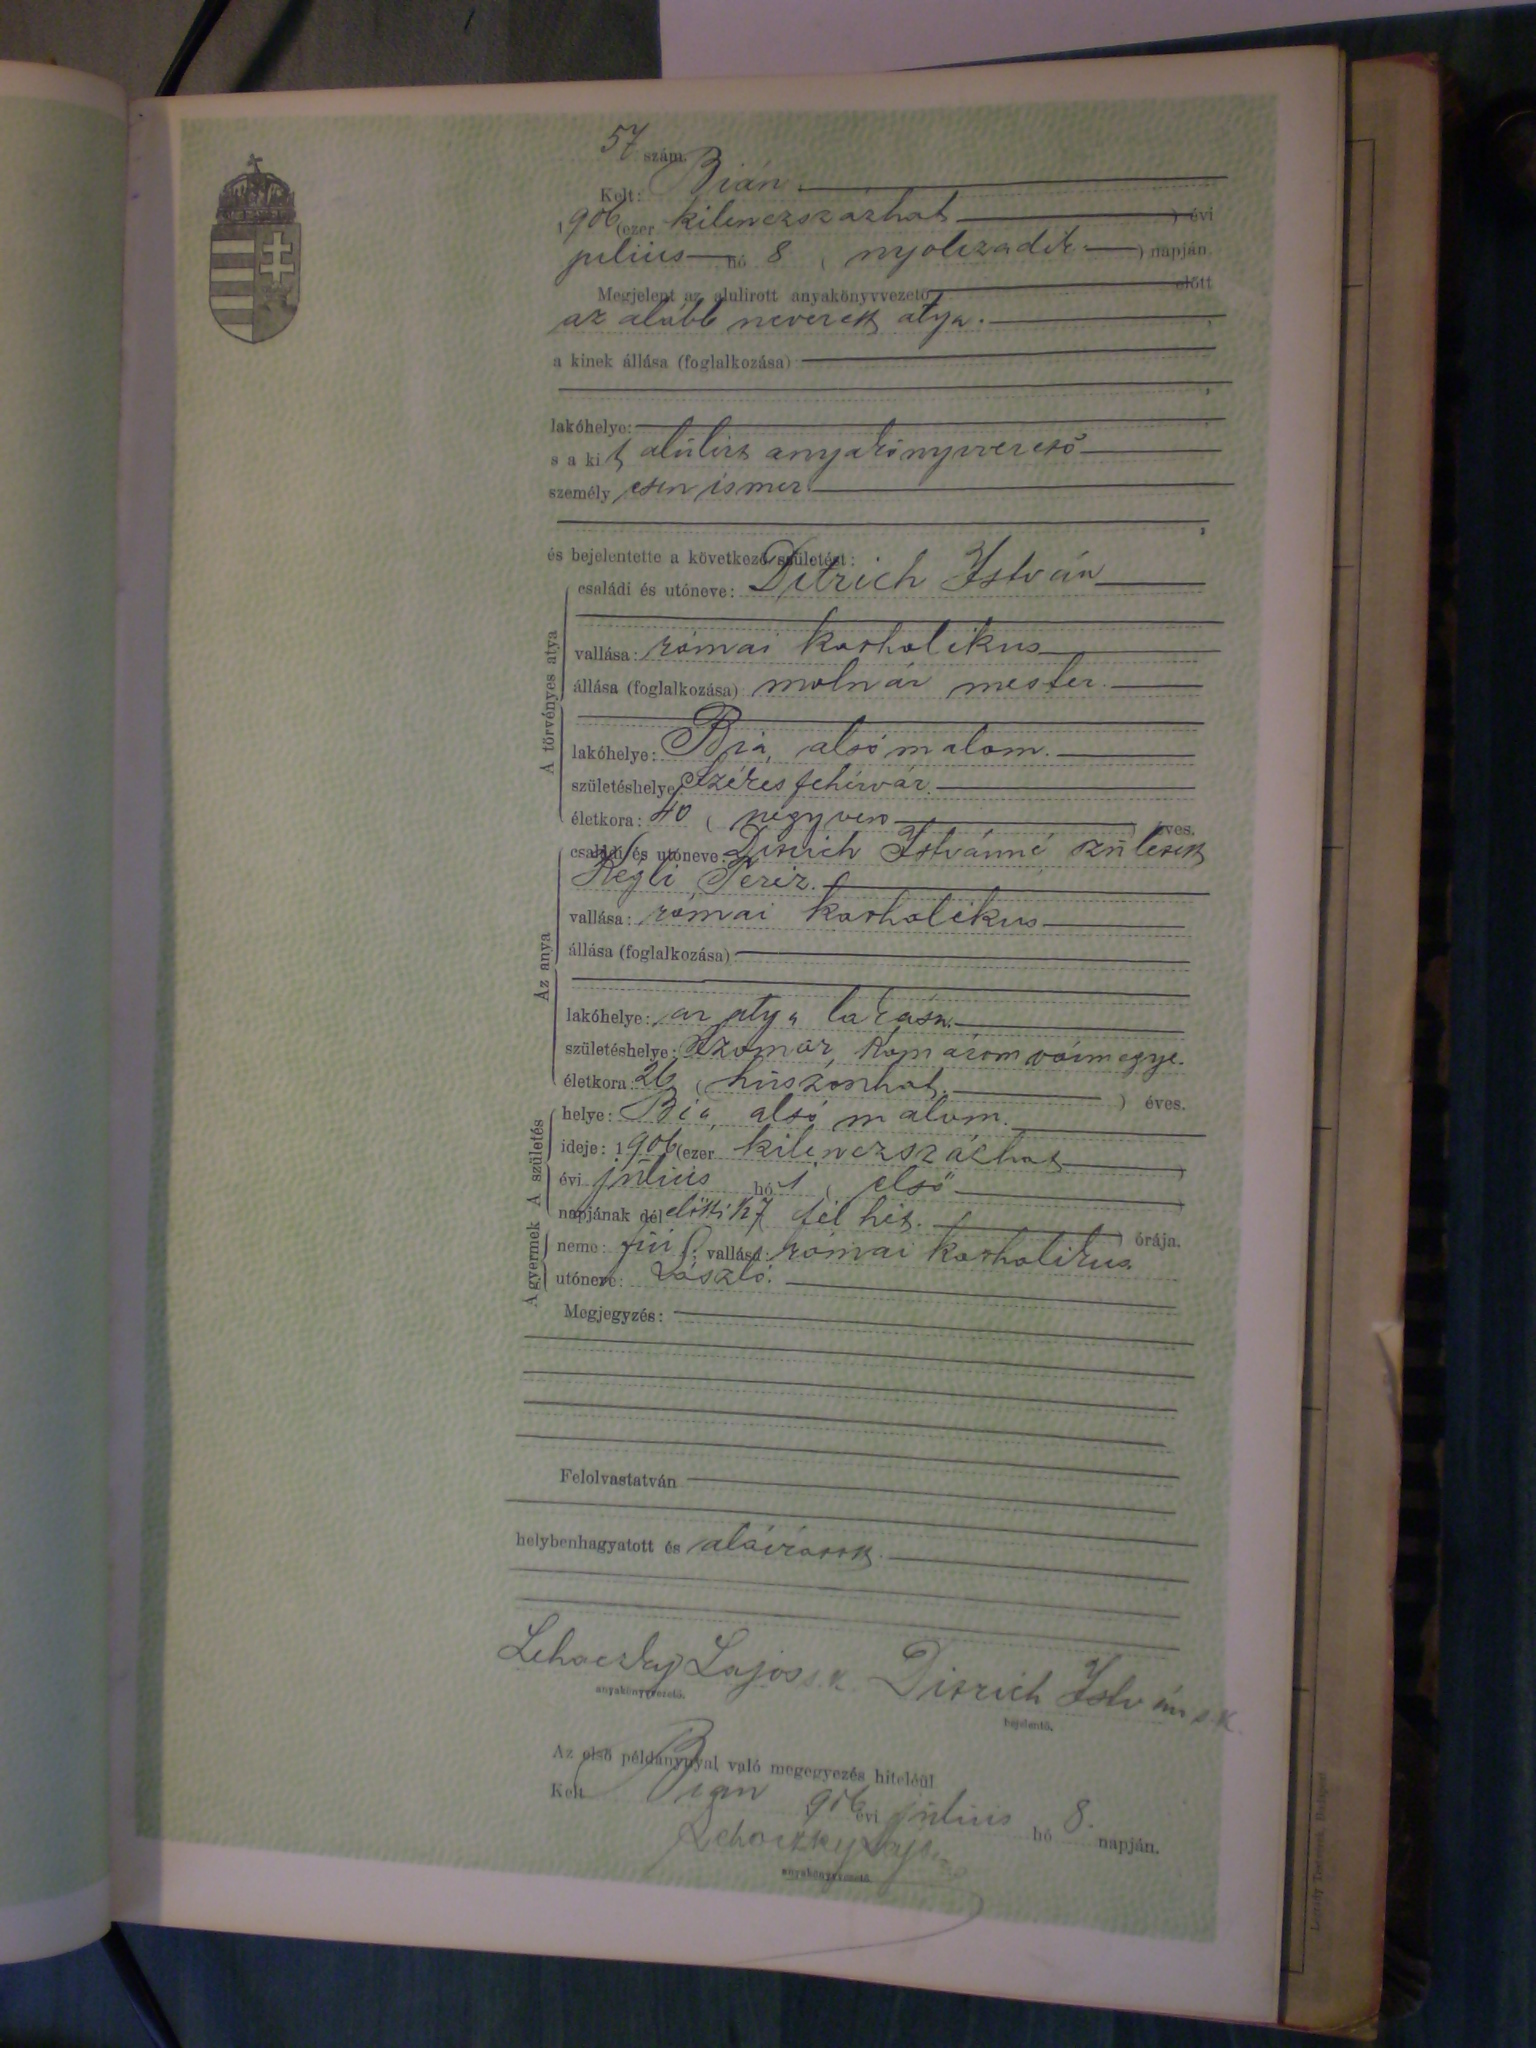 57 szám.
Kelt: Bián
1906 (ezer kilenczszázhat ) évi
július hó 8 ( nyolczadik ) napján.
Megjelent az alulirott anyakönyvvezető előtt
az alább nevezett atya.
a kinek állása (foglalkozása)
lakóhelye:
s a kit alúlirt anyakönyvvezető
személyesen ismer
és bejelentette a következő születést:
A törvényes atya
családi és utóneve: Ditrich István
vallása: római katholikus
állása (foglalkozása) molnár mester.
lakóhelye: Bia, alsómalom.
születéshelye Székesfehérvár.
életkora: 40 ( negyven ) éves.
Az anya
családi és utóneve: Ditrich Istvánné született
Kegli Teréz.
vallása: római katholikus
állása (foglalkozása)
lakóhelye: az atya lakása.
születéshelye: Szomor, Komárom vármegye.
életkora: 26 ( húszonhat. ) éves.
A születés
helye: Bia, alsó malom.
ideje: 1906 (ezer kilenczszázhat )
évi július hó 1 ( első )
napjának délelőtti 1/27 ( fél hét. ) órája.
A gyermek
neme: fiú ; vallása: római katholikus
utóneve: László.
Megjegyzés:
Felolvastatván
helybenhagyatott és aláíratott.
Lehoczky Lajos s.k. Ditrich István s.k.
anyakönyvvezető. bejelentő.
Az első példánynyal való megegyezés hiteléül
Kelt Bián 906 évi július hó 8. napján.
Lehoczky Lajos
anyakönyvvezető.